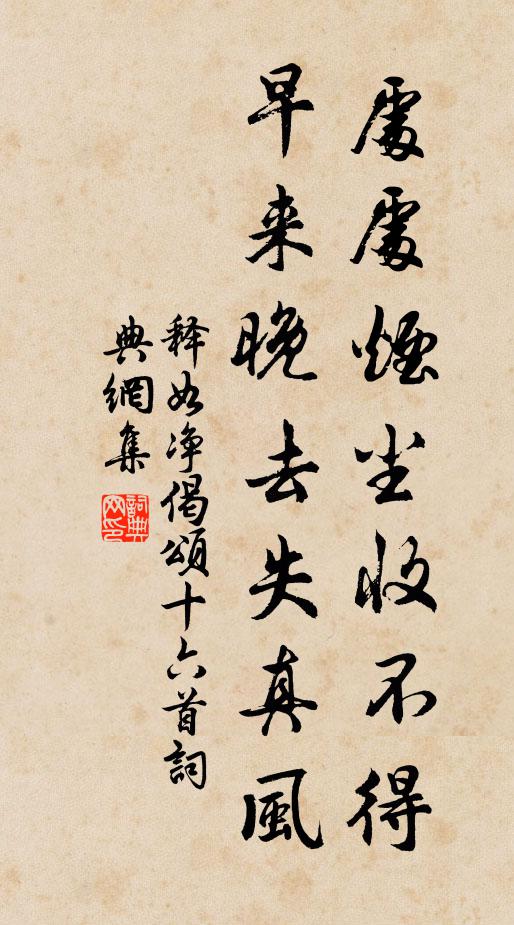 處處煙尘收不得
早来晚去失真風
释如净偈頌十六首詞
典網集
詞典網印